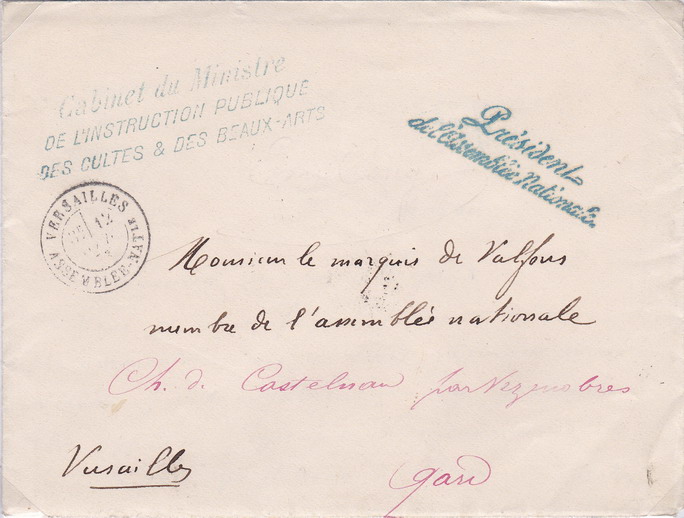 Cabinet du Ministre
DE L'INSTRUCTION PUBLIQUE
DES CULTES & DES BEAUX-ARTS
Président
de l'Assemblée Nationale
VERSAILLES
12
ASSEMBLEE NATLE
Monsieur le marquis de Valfons
membre de l'assemblée nationale
Ch. de Castelnau par Vezenobres
Versailles
Gard